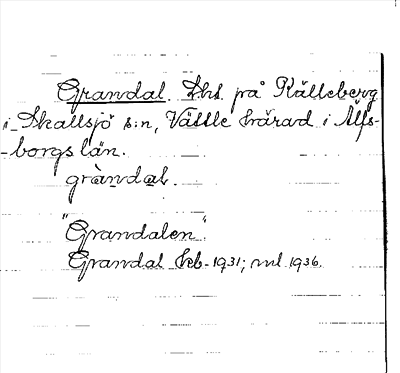 Grandal. Lht på Källeberg
i Skallsjö s:n, Vättle härad i Älfs-
-borgs län.
gràndal.
"Grandalen"
Grandal hfb. 1931; ml 1936.